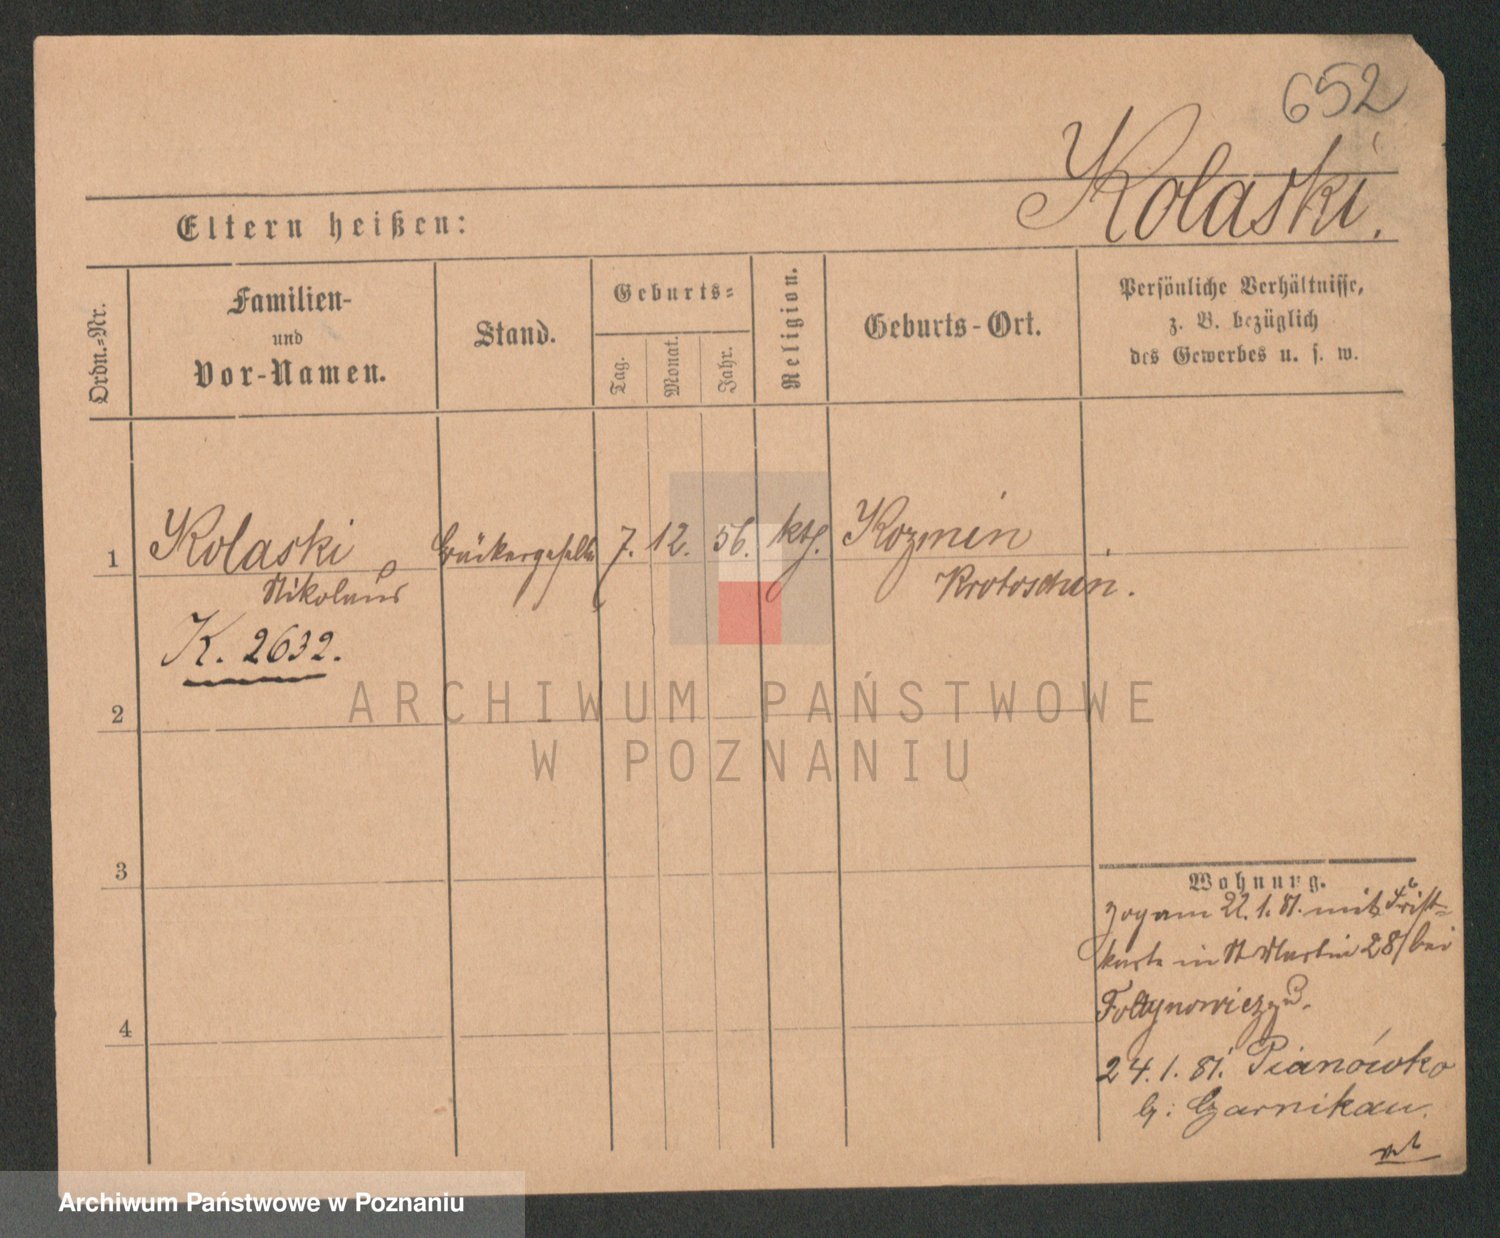 652
Kolaski.
Eltern heißen:
Ordn.-Nr.
Familien-
und
Vor-Namen.
Stand.
Geburts-
Tag.
Monat.
Jahr.
Religion.
Geburts-Ort.
Persönliche Verhältnisse,
z. B. bezüglich
des Gewerbes u. s. w.
1 Kolaski Bäckergeselle 7. 12. 56. kth. Kozmin
Nikolaus Krotoschin.
K. 2632.
2
3
4
Wohnung.
zog am 22. 1. 81. mit Frist-
karte in St Martin 28/ bei
Foltynowicz
24. 1. 81. Pianówko
Czarnikau.
ARCHIWUM PAŃSTWOWE
W POZNANIU
Archiwum Państwowe w Poznaniu